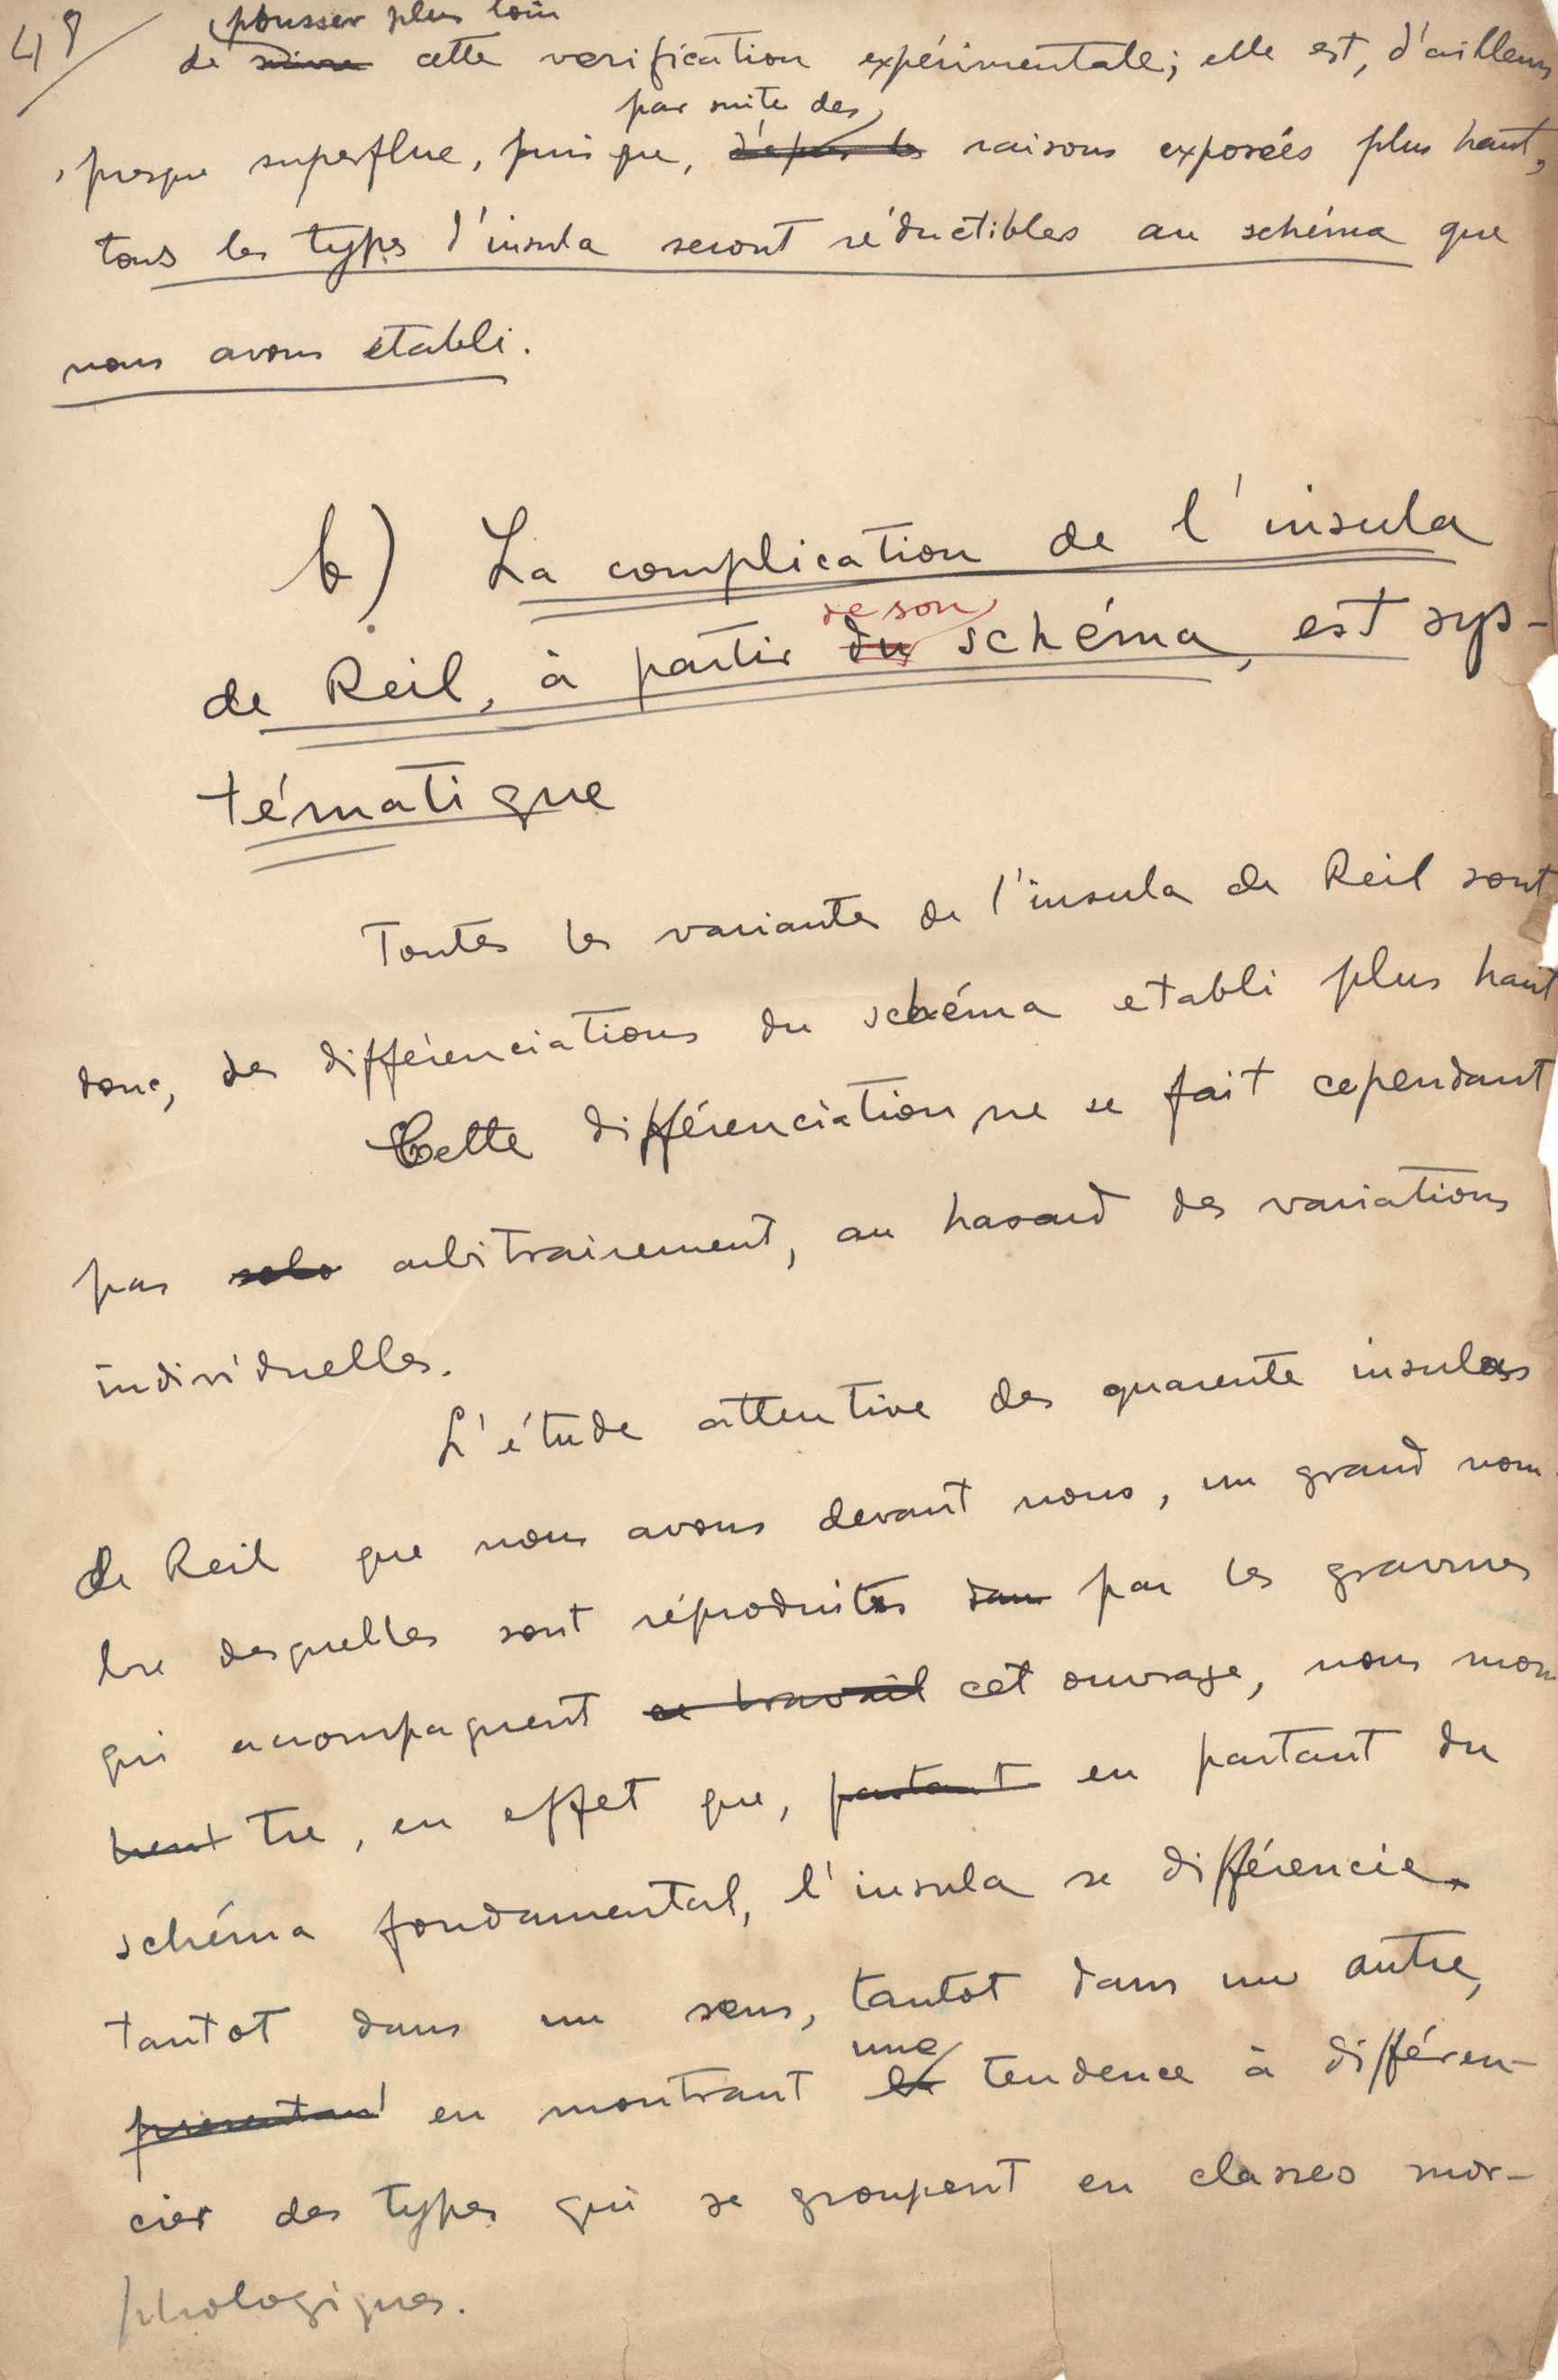 48
pousser plus loin
de suivre cette verification expérimentale; elle est, d'ailleurs
par suite des
presque superflue, puisque, d'après les raisons exposées plus haut,
tous les types d'insula seront réductibles au schéma que
nous avons établi.
b) La complication de l'insula
de son
de Reil, à partir du schéma, est sys-
tématique
Toutes les variantes de l'insula de Reil sont
donc, des différenciations du schéma etabli plus haut
Cette différenciation ne se fait cependant
pas arbitrairement, au hasard des variations
individuelles.
L'étude attentive des quarente insulas
de Reil que nous avons devant nous, un grand nom-
bre desquelles sont réproduites dans par les gravures
qui accompagnent ce travail cet ouvrage, nous mon
trent tre, en effet que, partant en partant du
schéma fondamental, l'insula se différencie
tantot dans un sens, tantot dans un autre,
une
présentant en montrant la tendence à différen-
cier des types qui se groupent en classes mor-
phologiques.